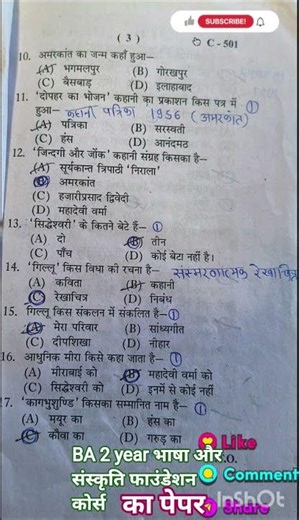 SUBSCRIBE!
( 3 )
C - 501
10. अमरकांत का जन्म कहाँ हुआ—
(A) भगमलपुर (B) गोरखपुर
(C) बैसबाड़ (D) इलाहाबाद
11. 'दोपहर का भोजन' कहानी का प्रकाशन किस पत्र में ①
हुआ— कहानी पत्रिका 1956 (अमरकांत)
(A) पत्रिका (B) सरस्वती
(C) हंस (D) आनंदमठ
12. 'जिन्दगी और जोंक' कहानी संग्रह किसका है—
(A) सूर्यकान्त त्रिपाठी 'निराला'
(B) अमरकांत
(C) हजारीप्रसाद द्विवेदी
(D) महादेवी वर्मा
13. 'सिद्धेश्वरी' के कितने बेटे हैं- ①
(A) दो (B) तीन
(C) पाँच (D) कोई बेटा नहीं है।
14. 'गिल्लू' किस विधा की रचना है— संस्मरणात्मक रेखाचित्र
(A) कविता (B) कहानी
(C) रेखाचित्र (D) निबंध
15. गिल्लू किस संकलन में संकलित है—①
(A) मेरा परिवार (B) सांध्यगीत
(C) दीपशिखा (D) नीहार
16. आधुनिक मीरा किसे कहा जाता है— ①
(A) मीराबाई को (B) महादेवी वर्मा को
(C) सिद्धेश्वरी को (D) इनमें से कोई नहीं
7. 'कागभुशुण्डि' किसका सम्मानित नाम है— ①
(A) मयूर का (B) हंस का
(C) कौवा का (D) गरुड़ का
Like
BA 2 year भाषा और
.O.
संस्कृति फाउंडेशन
Comment
कोर्स का पेपर
Share
InShOt